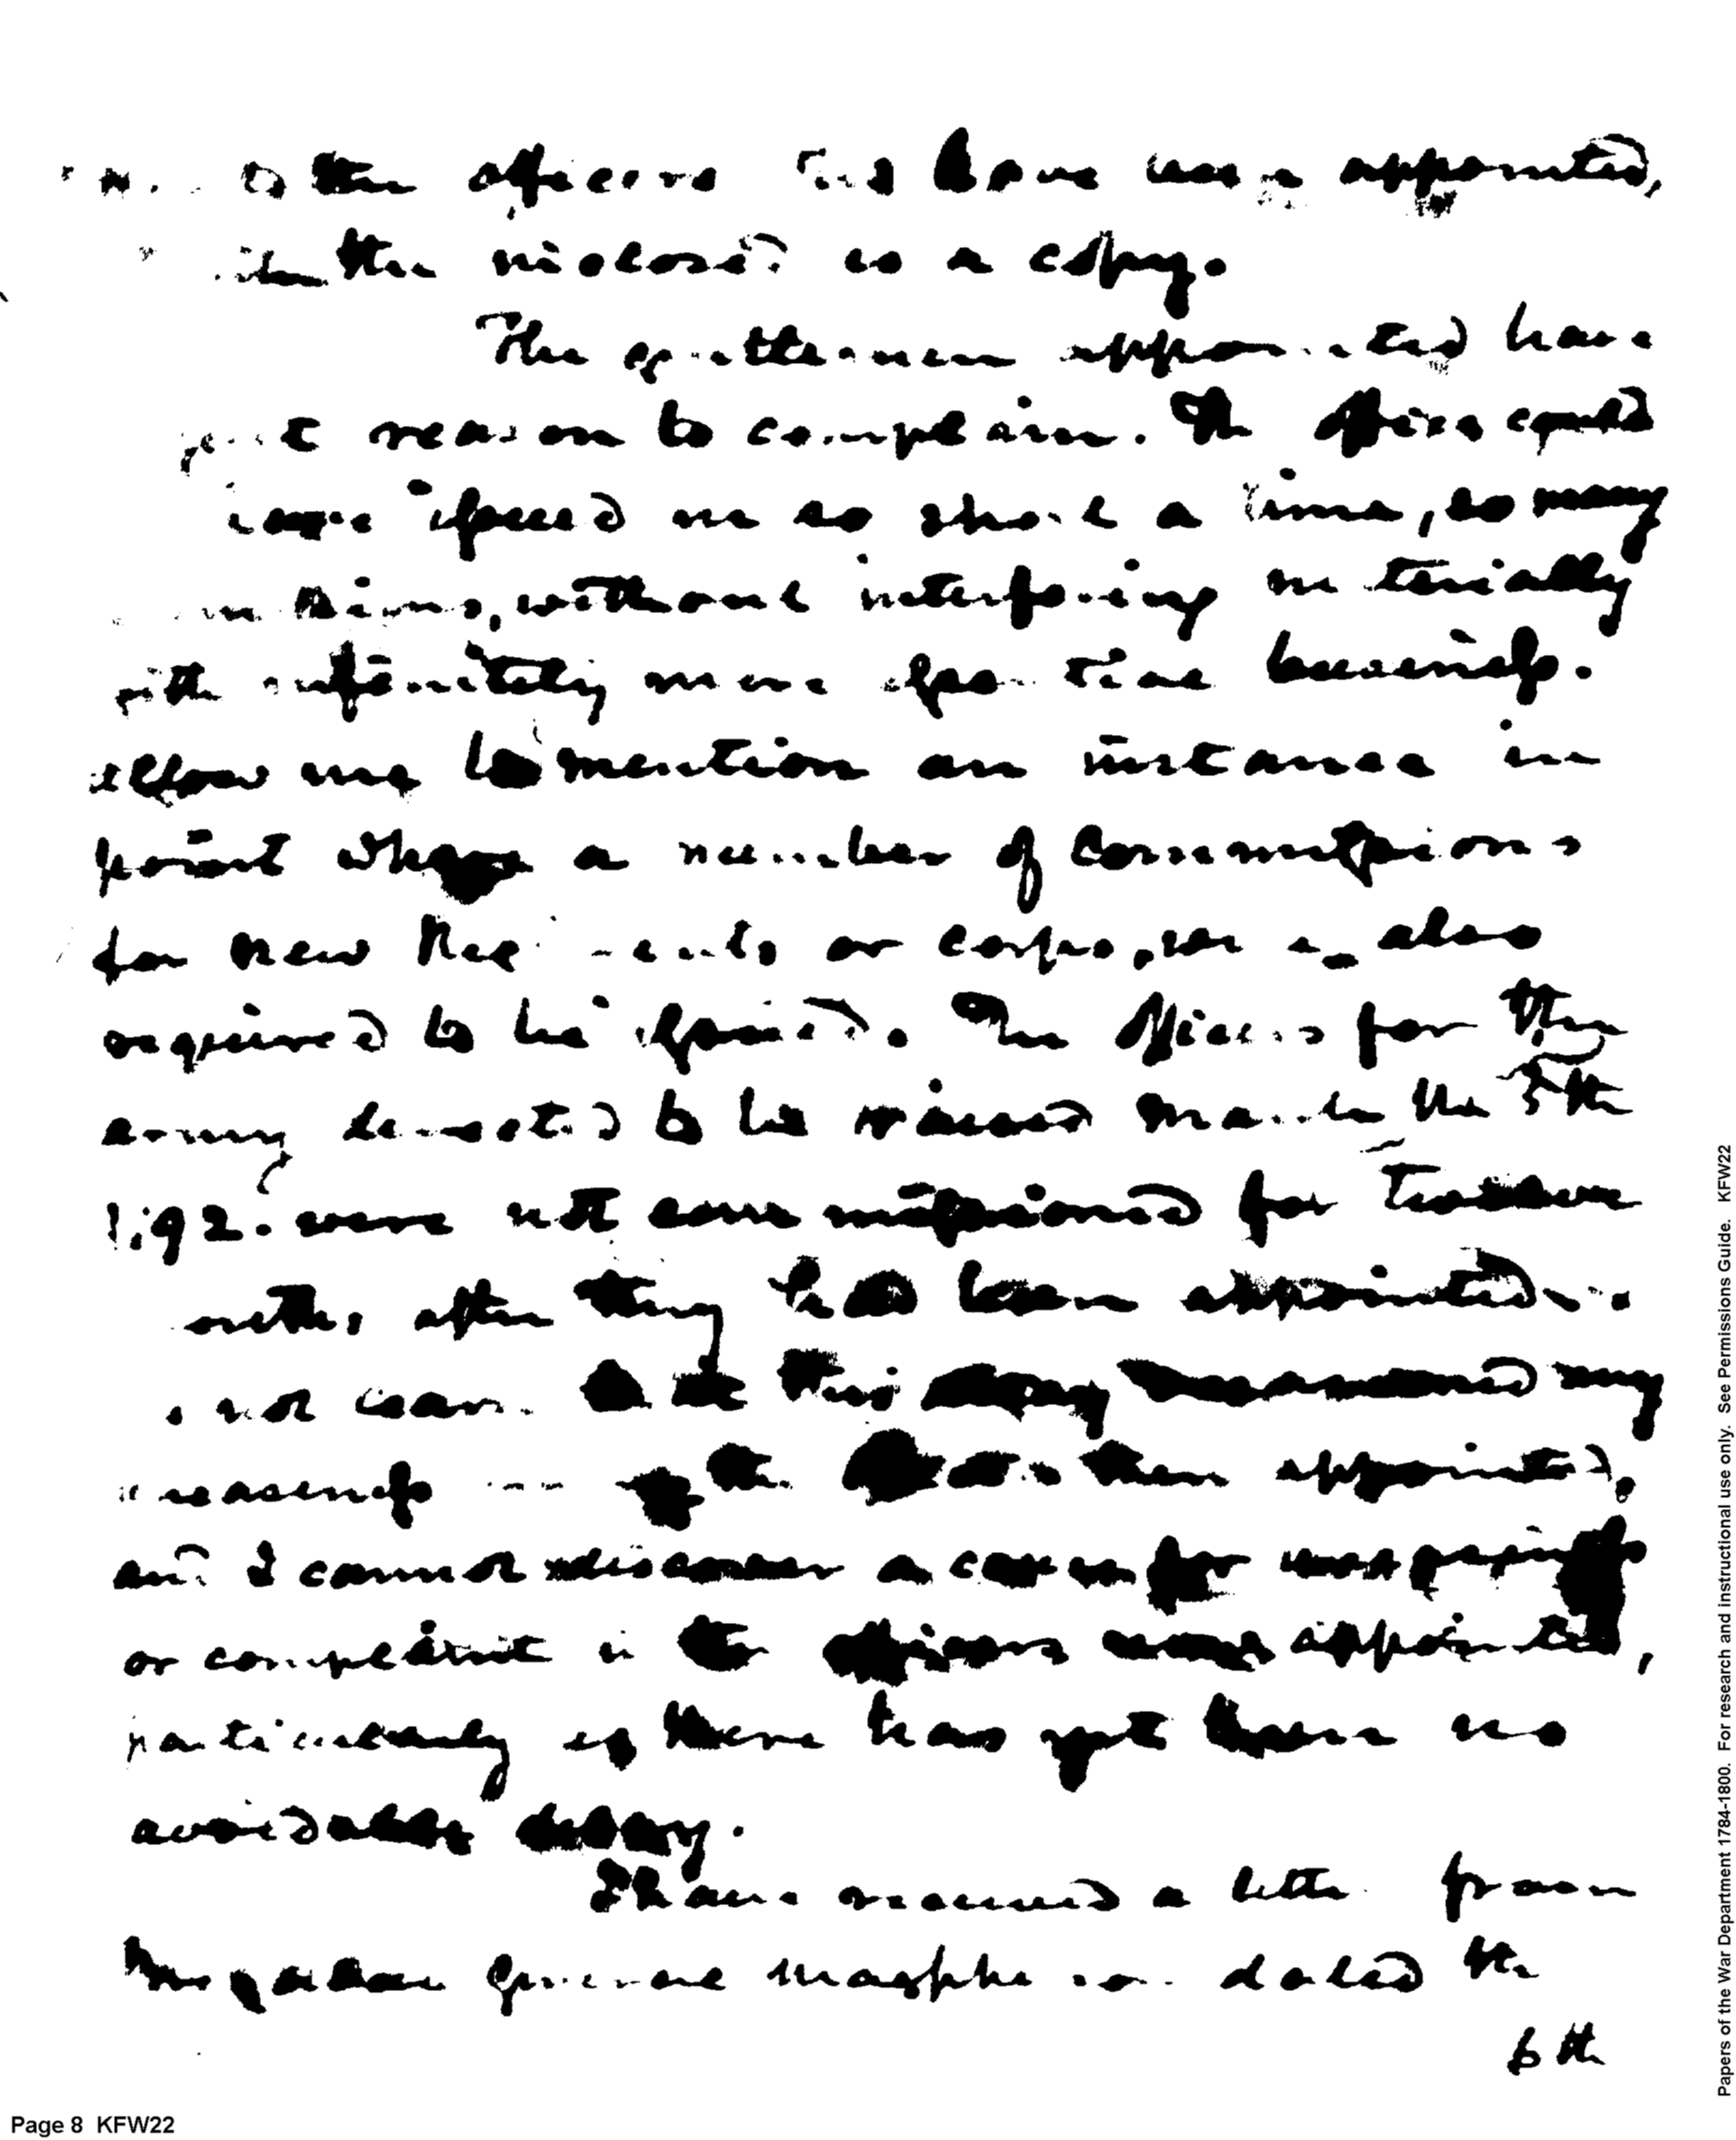 to the officers had been appointed,
the inclosed is a copy.
The gentlemen appointed have
reason to complain. The Office could
issued in so short a time, so many
without interfering materially
with infinitely more essential business.
allow me to mention an instance in
point where a number of Commissions
for new Regiments or corps, were also
required to be issued. The Officers for the
army directed to be raised March the 5th
1792. were not commissioned for Twelve
months after they had been appointed.
I do not learn that this delay
uneasiness the Officers then appointed,
and I cannot discover a cause for
or complaint in the officers now appointed,
particularly as there has yet been no
avoidable delay.
I have received a letter from
Brigadier General Macpherson dated the
6th
Page 8 KFW22
Papers of the War Department 1784-1800. For research and instructional use only. See Permissions Guide. KFW22